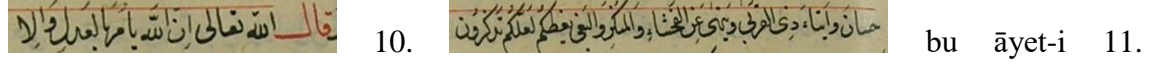 وقال الله تعالى ان الله يأمر بالعدل والا 10. حسان وايتاء ذى القربى وينهى عن الفحشاء والمنكر والبغى يعظكم لعلكم تذكرون bu āyet-i 11.